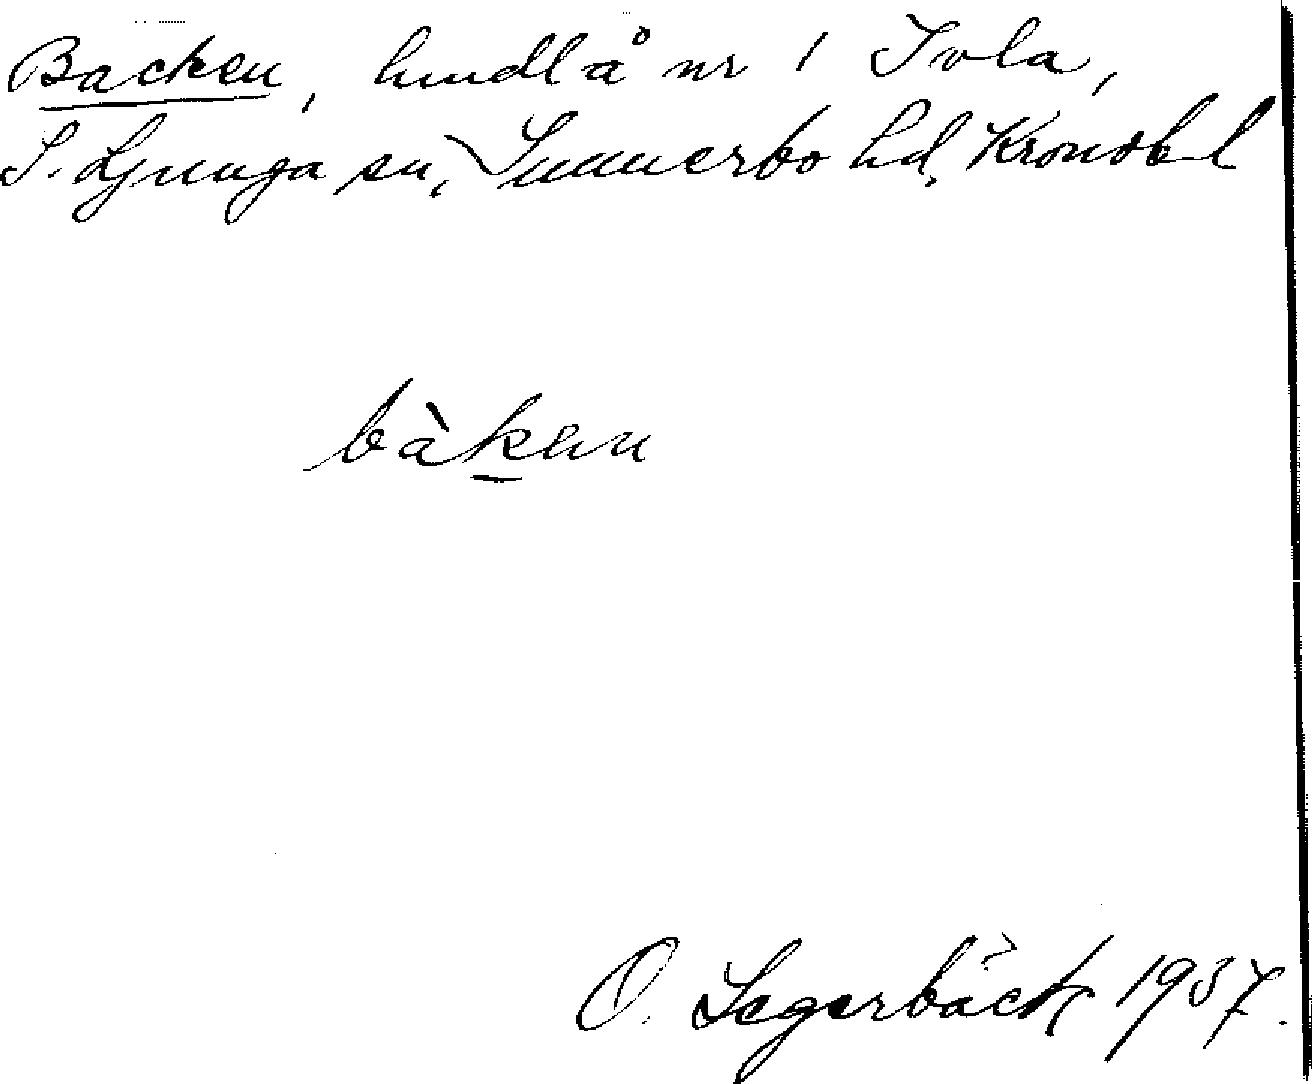 Backen, hmdlå nr 1 Ivla,
S. Ljunga sn, Sunnerbo hd, Kronob l
bàken
O. Segerbäck 1937.